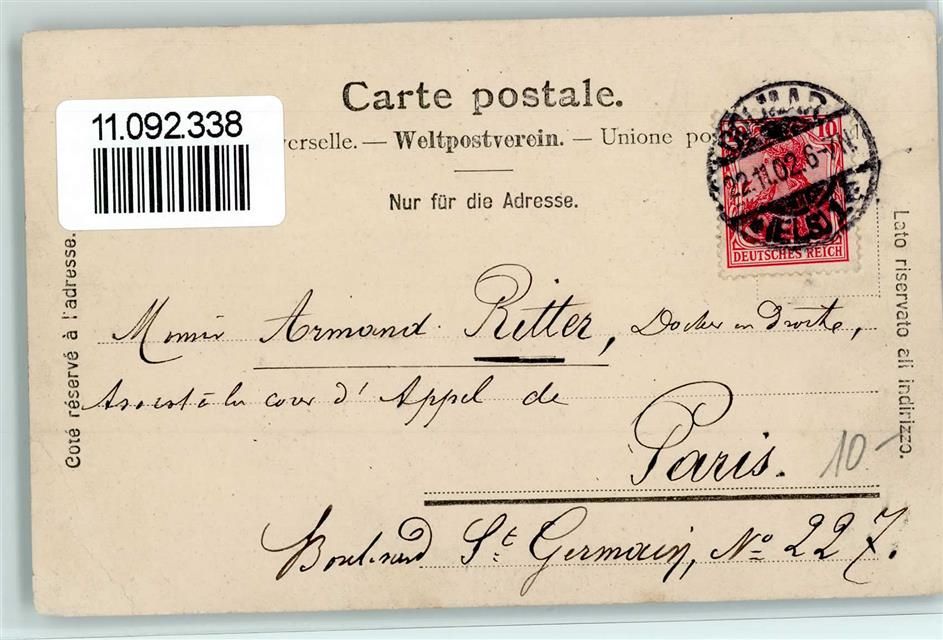 Carte postale.
11.092.338
verselle. — Weltpostverein. — Unione po
Nur für die Adresse.
COLMAR
22.11.02. 6-7 N.
(ELS)
10
DEUTSCHES REICH
Coté réservé à l'adresse.
Lato riservato all indirizzo.
Armand Ritter, Docteur en Droite,
à la cour d'Appel de
Paris.
10-
Boulevard St Germain, No 227.